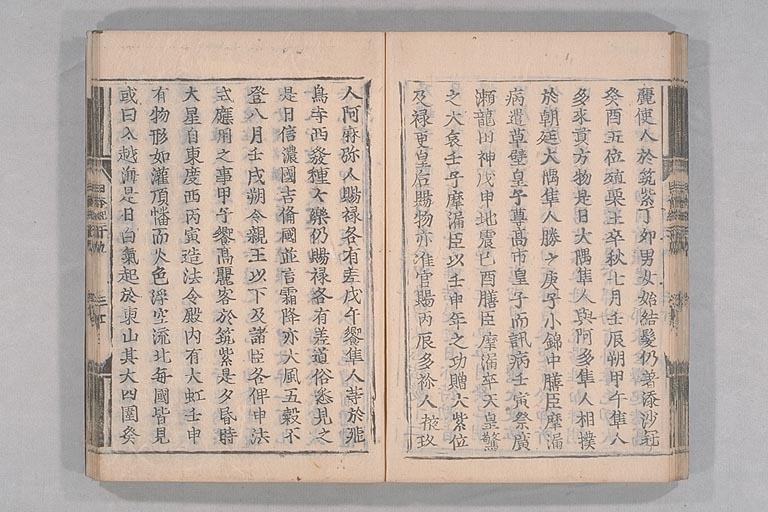 麗使人於筑紫丁卯男女始結髮仍著漆沙冠
癸酉五位殖栗王卒秋七月壬辰朔甲午隼人
多來貢方物是日大隅隼人與阿多隼人相撲
於朝廷大隅隼人勝之庚子小錦中膳臣摩漏
病遣草壁皇子尊高市皇子而訊病壬寅祭廣
瀬龍田神戊申地震己酉膳臣摩漏卒天皇驚
之大哀壬子摩漏臣以壬申年之功贈大紫位
及禄更皇后賜物亦准官賜丙辰多祢人掖玖
人阿麻弥人賜禄各有差戊午饗隼人等於飛
鳥寺西發種々樂仍賜禄各有差道俗悉見之
是日信濃國吉備國並言霜降亦大風五穀不
登八月壬戌朔令親王以下及諸臣各俾申法
式應用之事甲子饗高麗客於筑紫是夕昏時
大星自東度西丙寅造法令殿内有大虹壬申
有物形如灌頂幡而火色浮空流北毎國皆見
或曰入越海是日白氣起於東山其大四圍癸